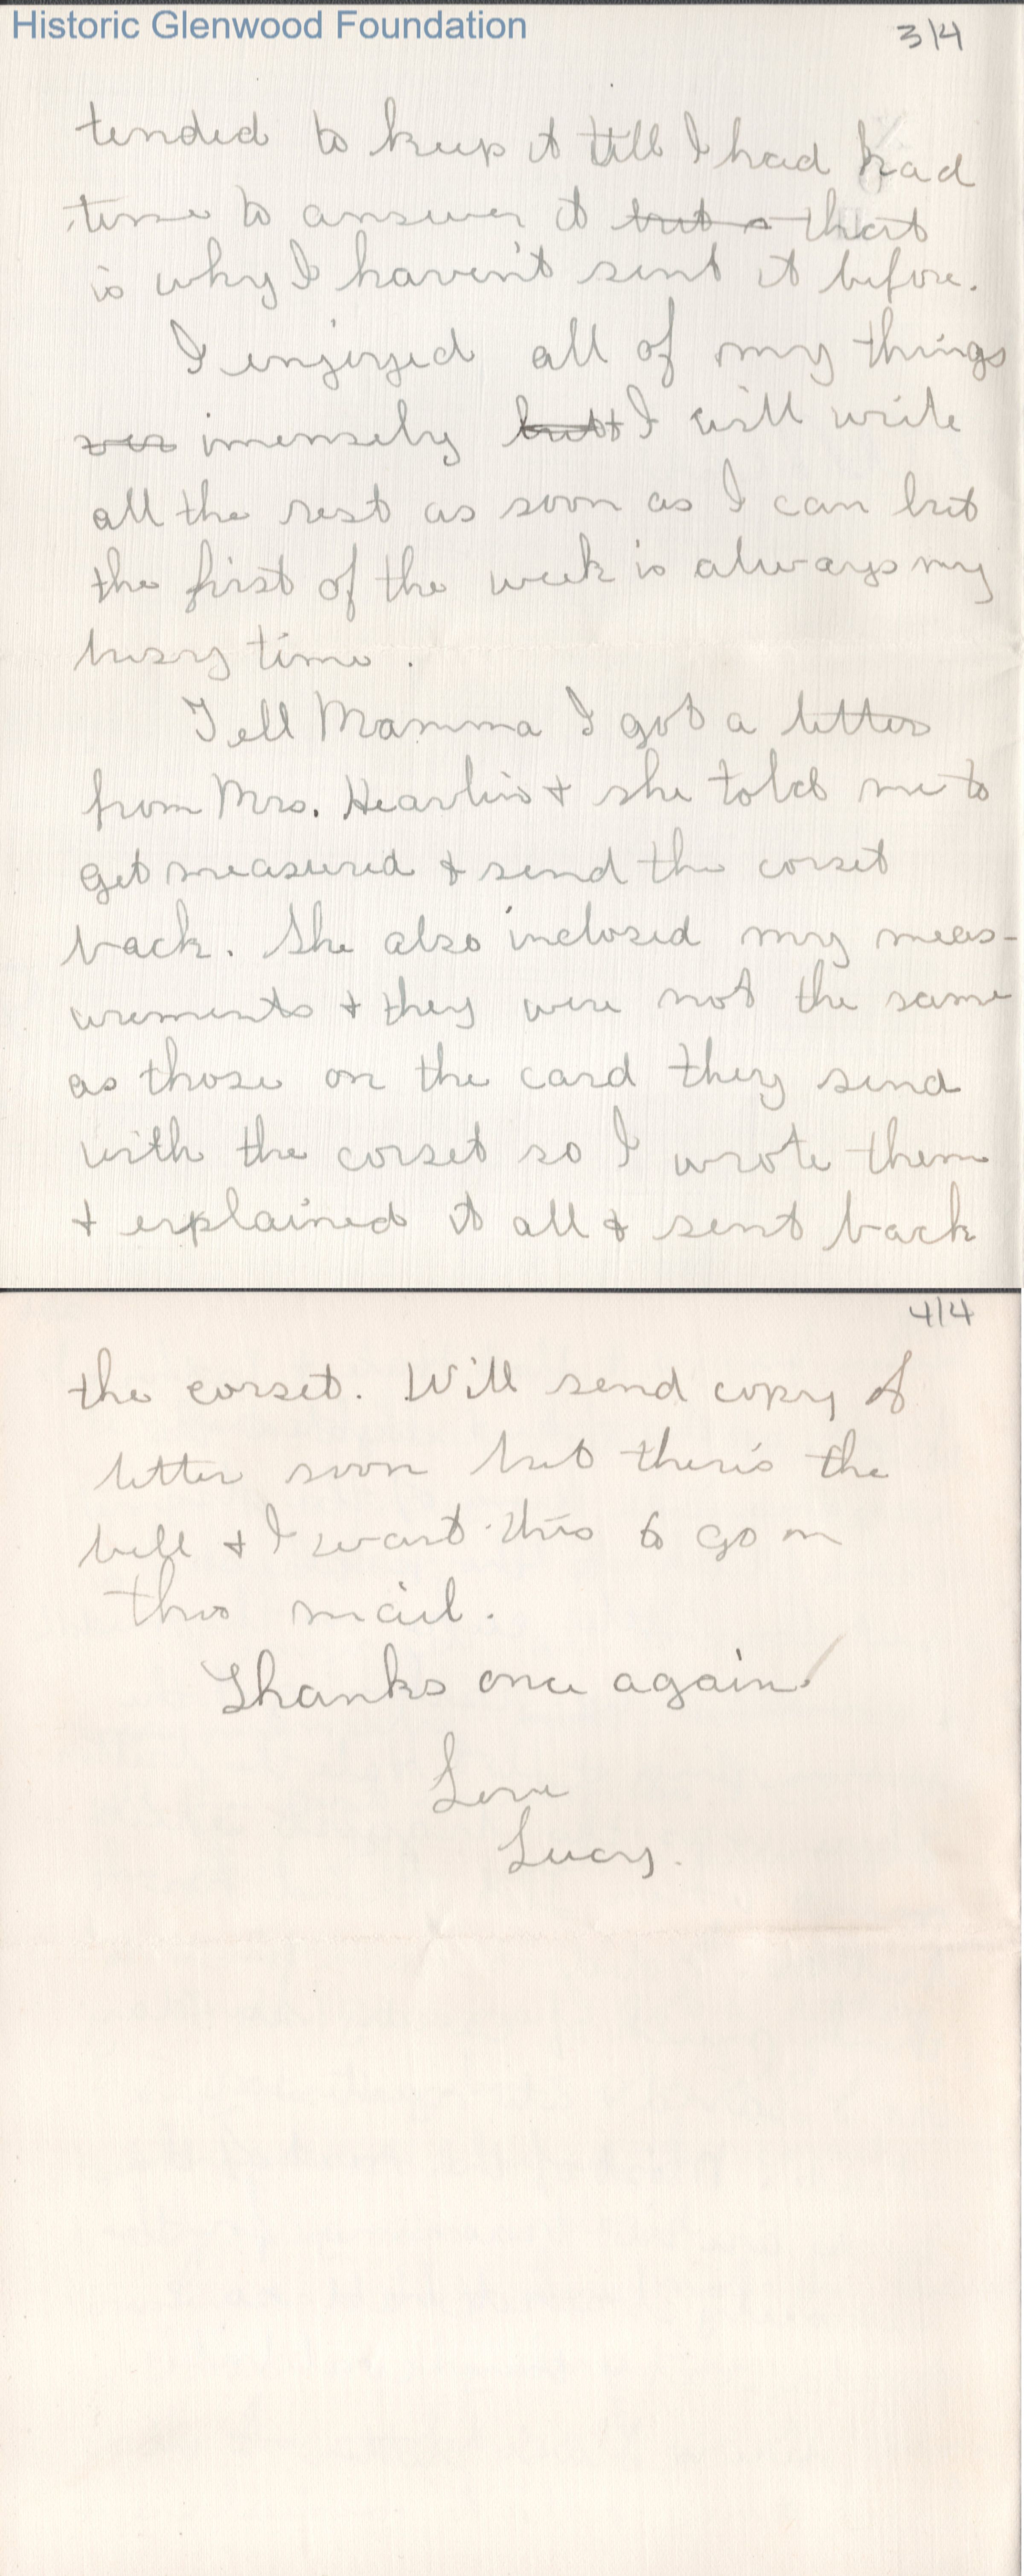 Historic Glenwood Foundation
3/4
tended to keep it till I had had
time to answer it but that
is why I haven't sent it before.
I enjoyed all of my things
ver imensely but I will write
all the rest as soon as I can but
the first of the week is always my
busy time.
Tell Mamma I got a letter
from Mrs. & she told me to
get measured & send the corset
back. She also inclosed my meas-
urements & they were not the same
as those on the card they send
with the corset so I wrote them
& explained it all & sent back
4/4
the corset. Will send copy of
letter soon but there's the
bell & I want this to go on
this mail.
Thanks once again!
Love
Lucy.